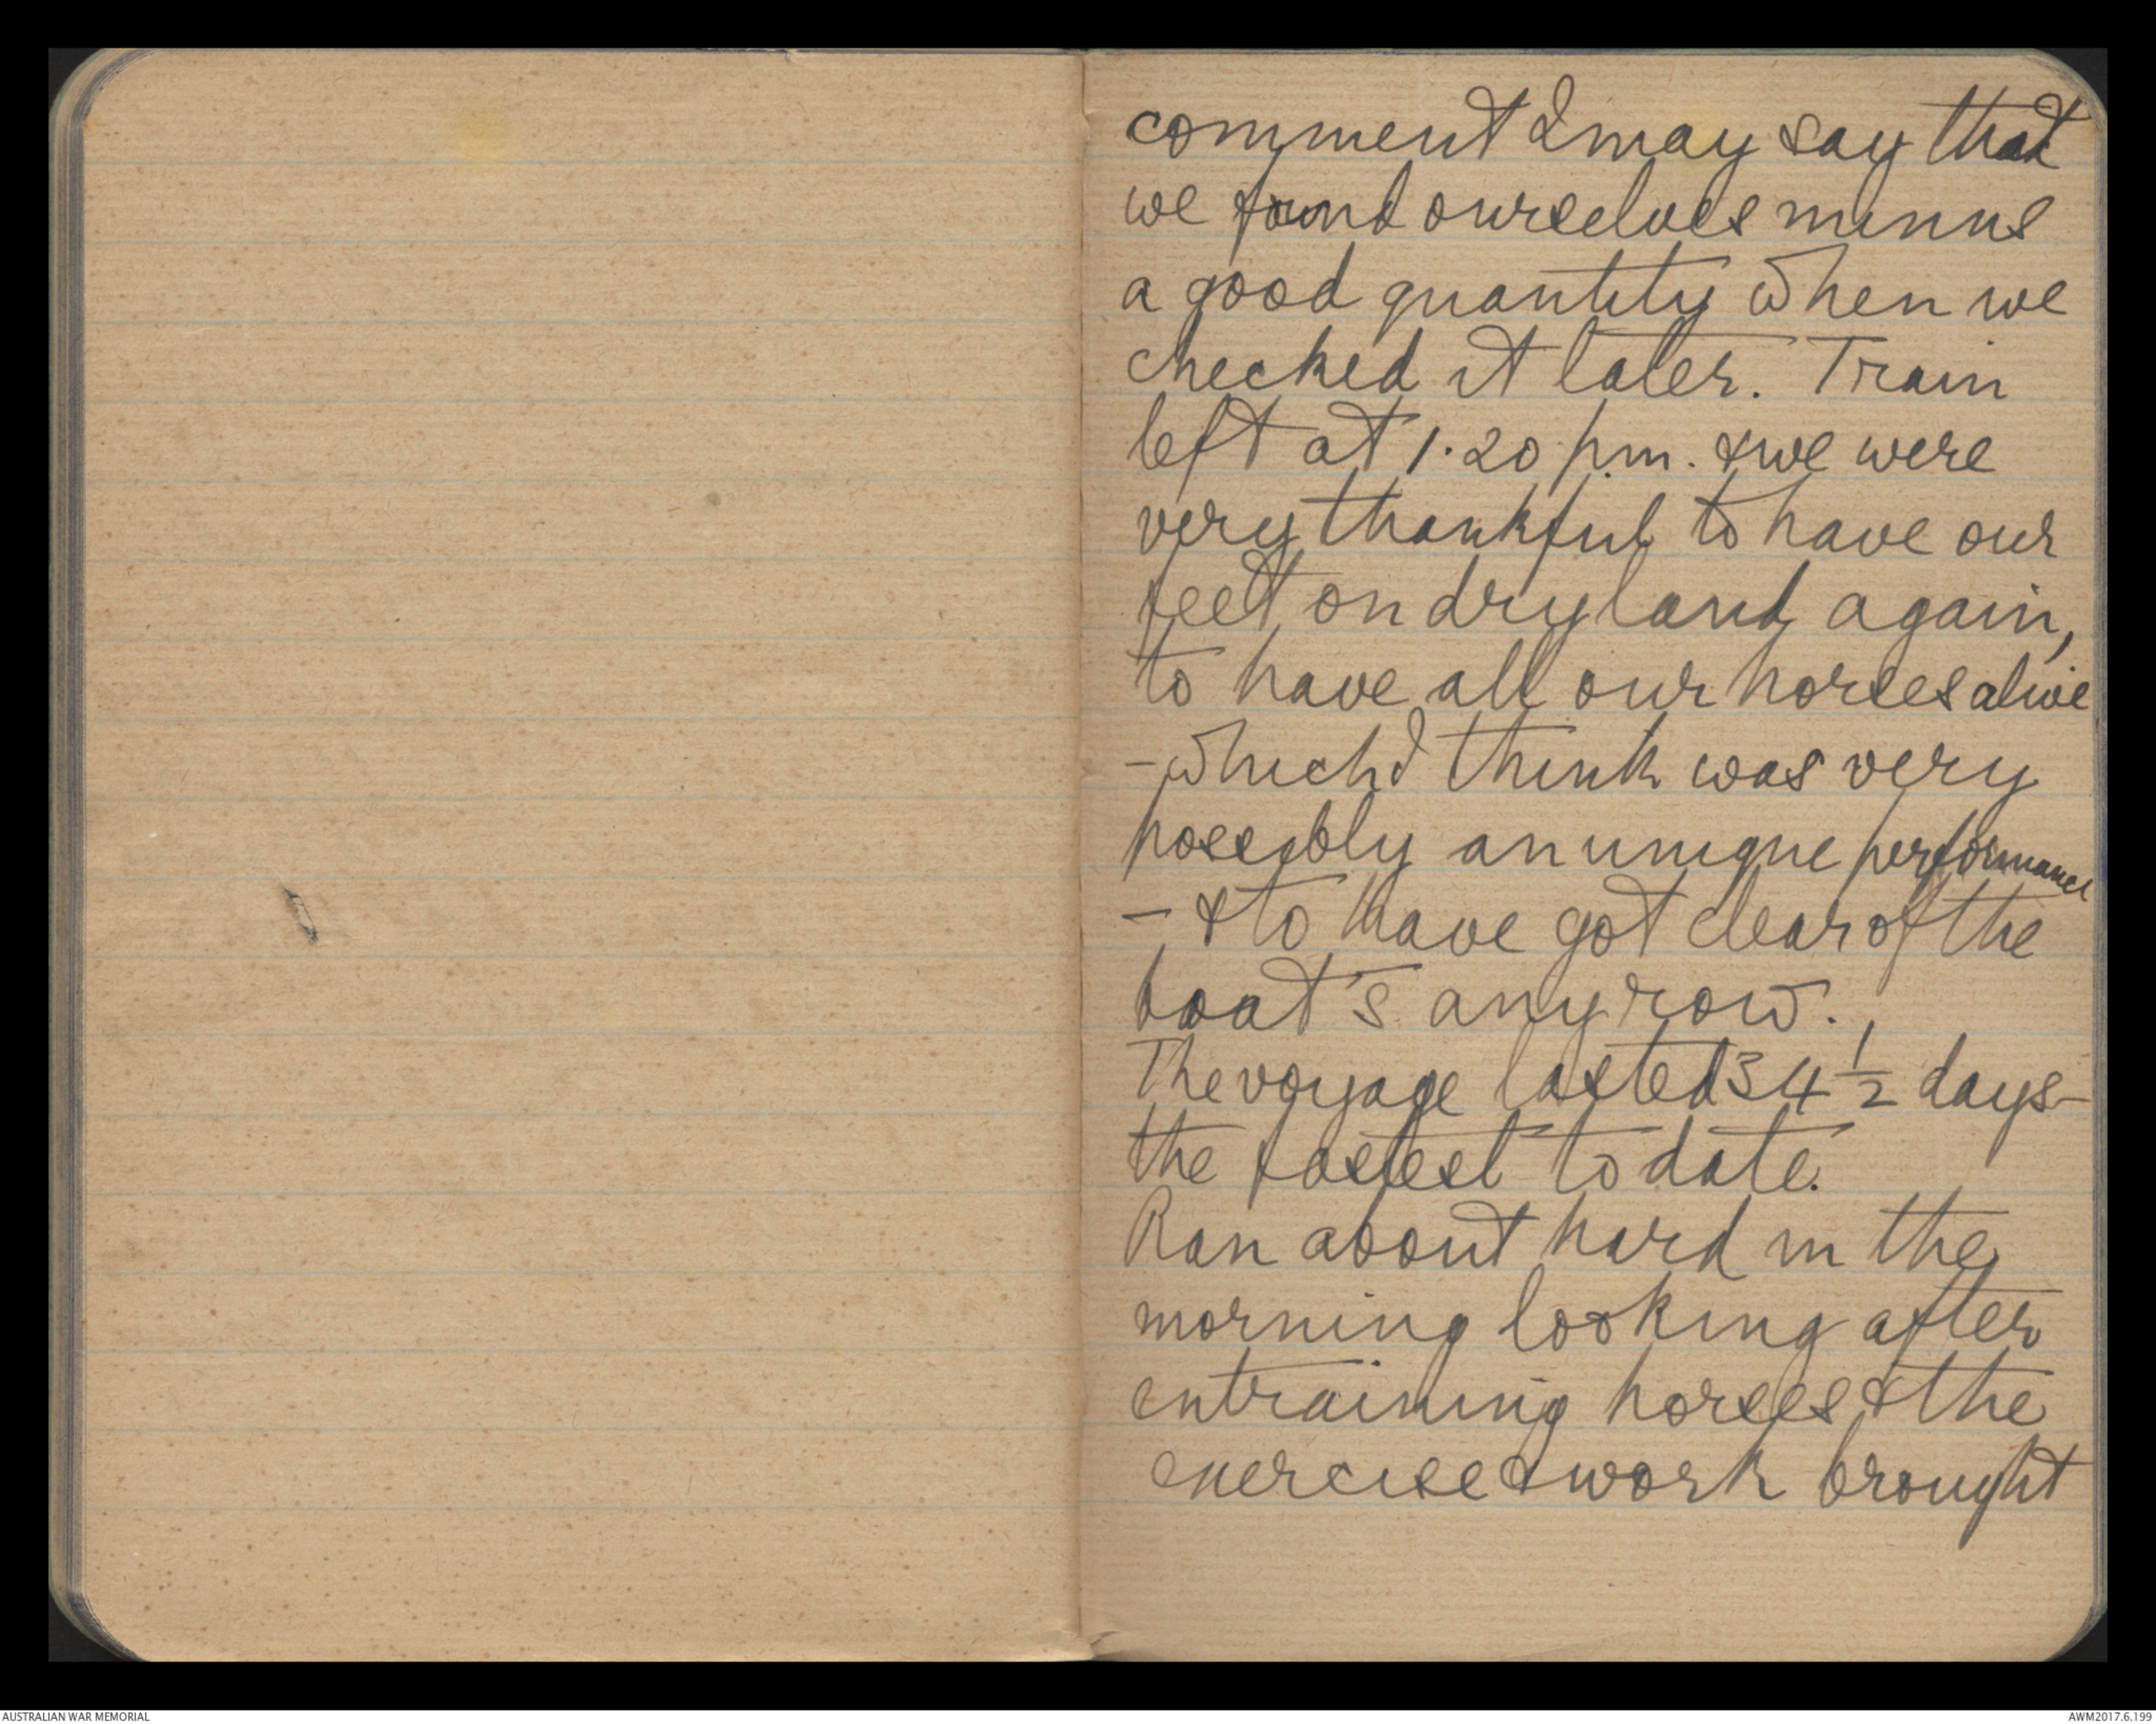 comment I may say that
we found ourselves minus
a good quantity when we
checked it later. Train
left at 1.20 p.m. & we were
very thankful to have our
feet on dry land again,
to have all our horses alive
- which I think was very
possibly an unique performance
- & to have got clear of the
boat's any row.
The voyage lasted 34 1/2 days -
the fastest to date.
Ran about hard in the
morning looking after
entraining horses & the
exercise & work brought
AUSTRALIAN WAR MEMORIAL
AWM2017.6.199